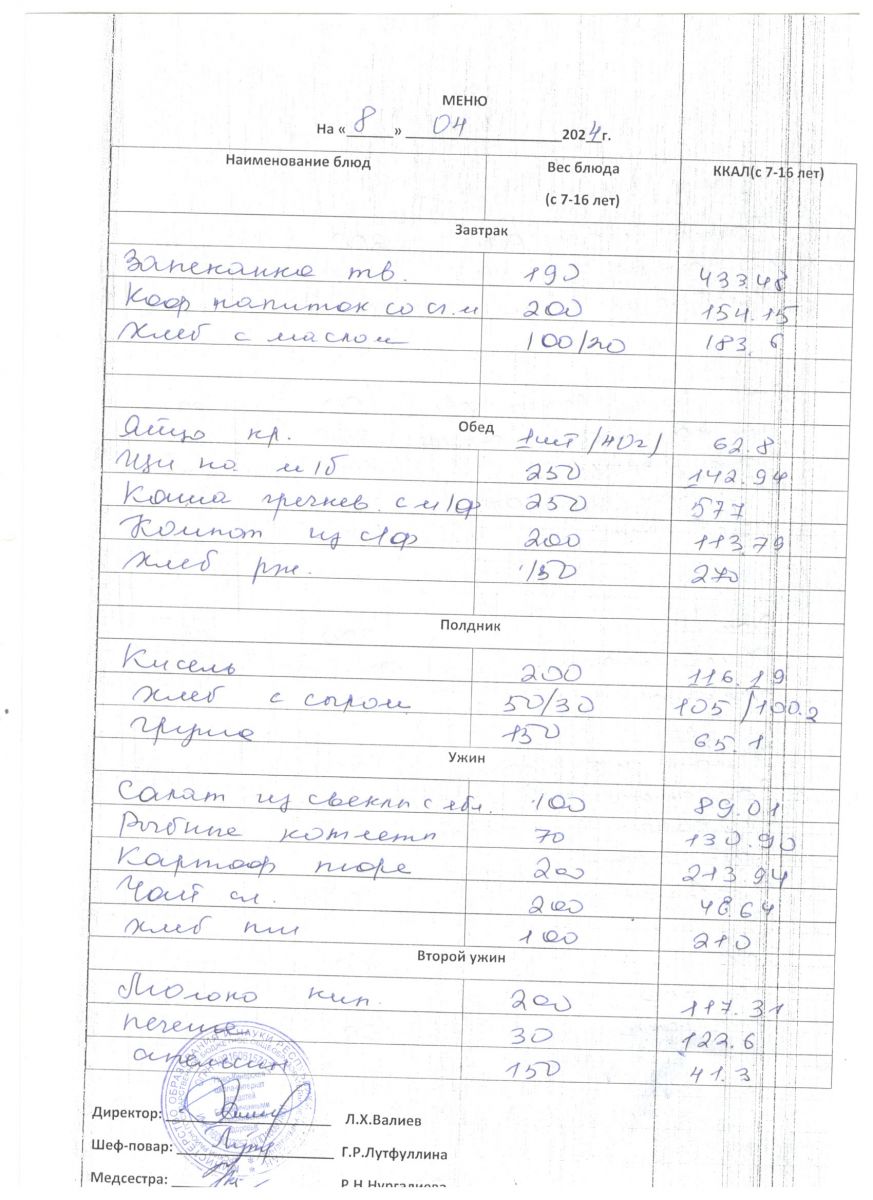 МЕНЮ
На « 8 » 04 2024 г.
Наименование блюд Вес блюда (с 7-16 лет) ККАЛ(с 7-16 лет)
Завтрак
Запеканка тв. 190 433.48
Коф напиток со сг.м 200 154.15
Хлеб с маслом 100/20 183.6
Обед
Яйцо кр. 1шт /40г/ 62.8
Щи на м/б 250 142.94
Каша гречнев. с м/ф 250 577
Компот из с/ф 200 113.79
Хлеб рж. 150 270
Полдник
Кисель 200 116.19
Хлеб с сыром 50/30 105/100.2
Груша 150 65.1
Ужин
Салат из свеклы с ябл. 100 89.01
Рыбные котлеты 70 130.90
Картоф пюре 200 213.94
Чай сл. 200 48.64
Хлеб пш 100 210
Второй ужин
Молоко кип. 200 117.31
печенье 30 122.6
апельсин 150 41.3
Директор: Л.Х.Валиев
Шеф-повар: Г.Р.Лутфуллина
Медсестра: Р.Н.Нургалиева